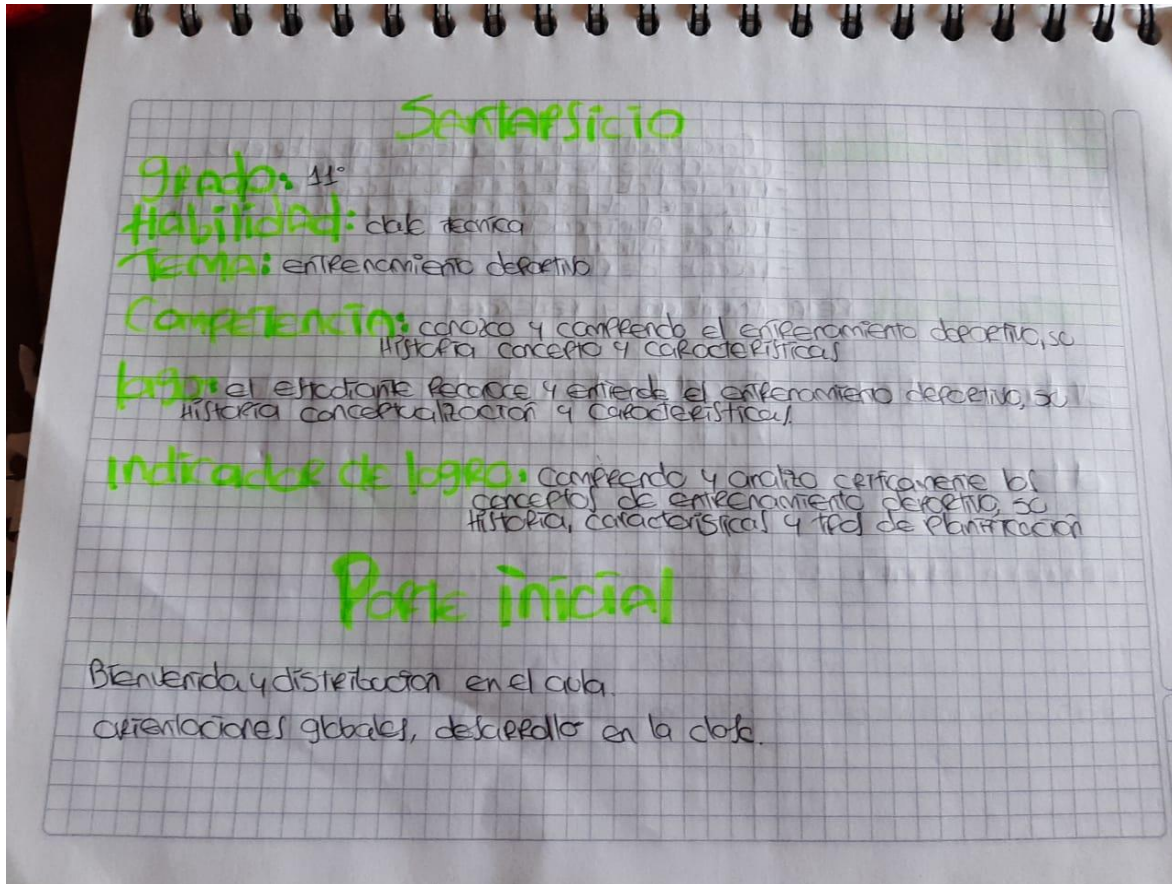 Sentapsicio
Grado: 11°
Habilidad: clase tecnica
TEMA: entrenamiento deportivo
Competencia: conozco y comprendo el entrenamiento deportivo, su
Historia concepto y caracteristicas
logro: el estudiante Reconoce y entiende el entrenamiento deportivo, su
Historia conceptualización y caracteristicas.
Indicador de logro: comprendo y analizo criticamente los
conceptos de entrenamiento deportivo, su
Historia, caracteristicas y tipos de Planificación
Parte inicial
Bienvenida y distribucion en el aula.
orientaciones globales, desarrollo en la clase.